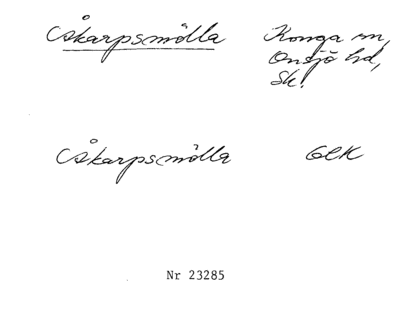 Åkarpsmölla Konga sn,
Onsjö hd,
Sk.
Åkarpsmölla GEK
Nr 23285